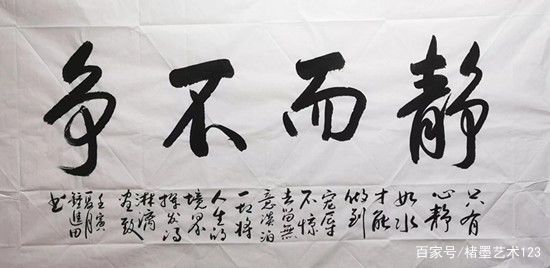 静而不争
只有
心静
如水
才能
做到
宠辱
不惊
去留無
意淡泊
一切将
人生的
境界
挥发得
淋漓
盡致
壬寅
夏月
鍾進田
书
百家号/楮墨艺术123